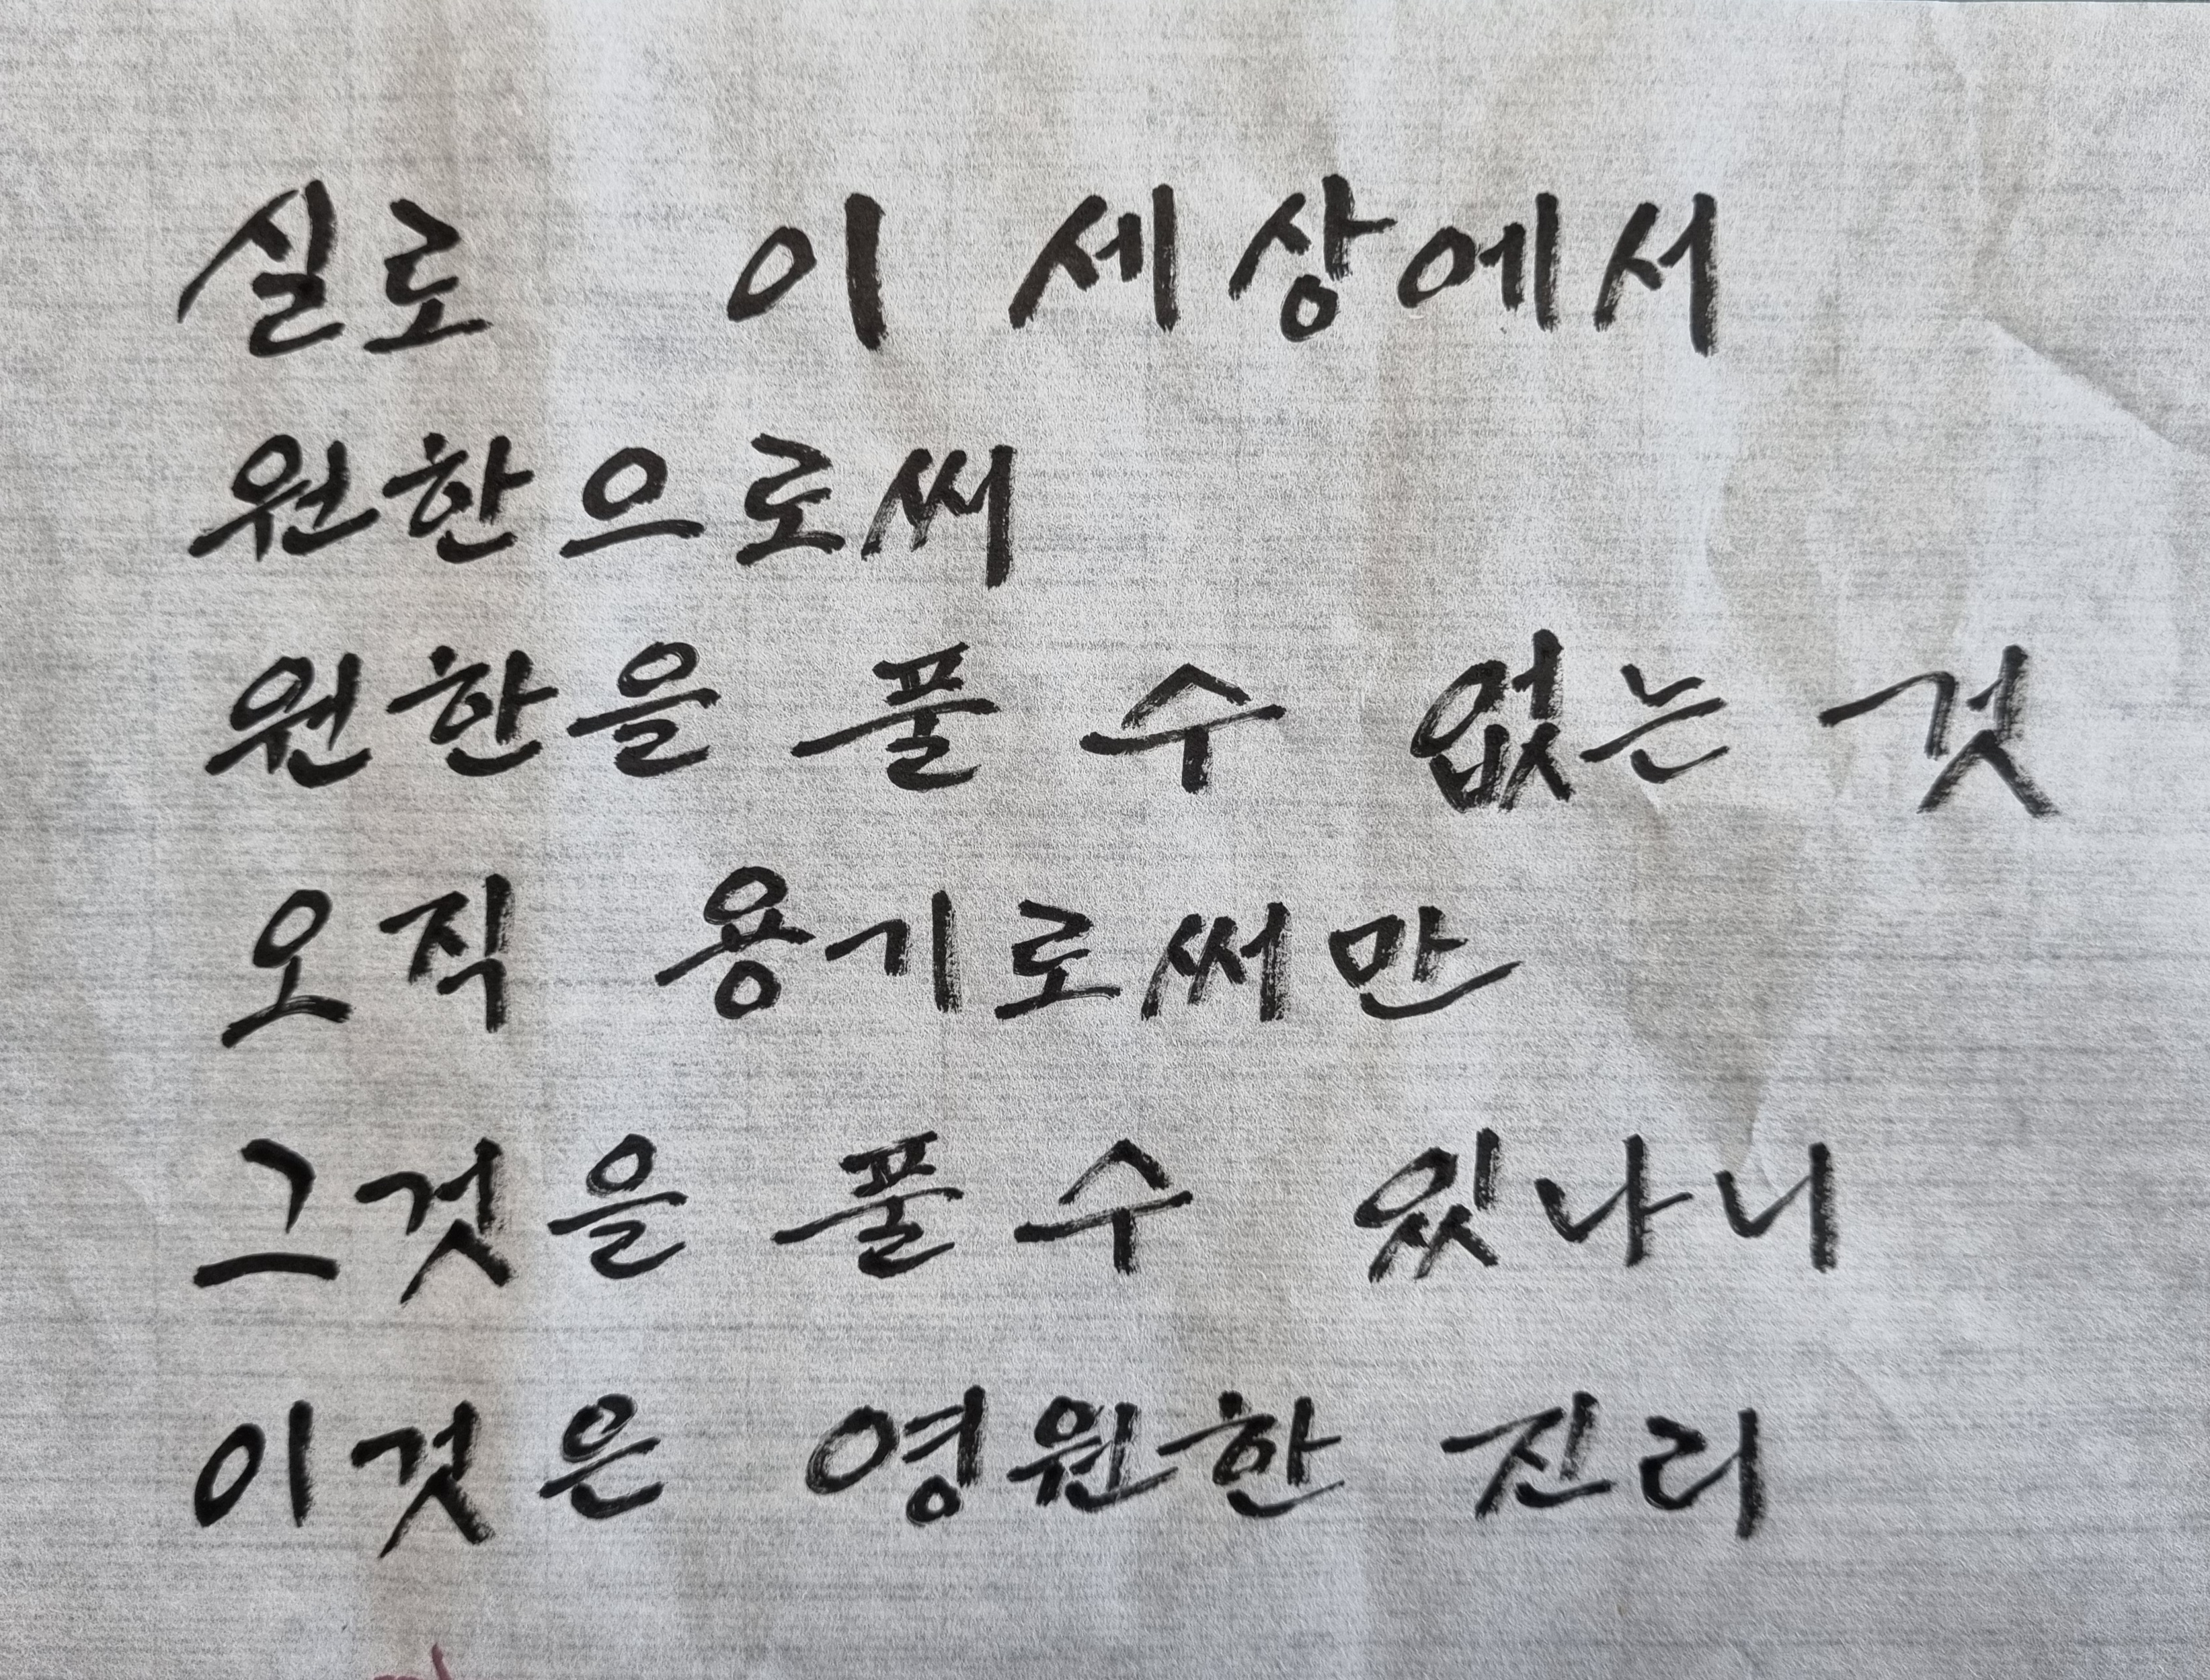 실로 이 세상에서
원한으로써
원한을 풀 수 없는 것
오직 용기로써만
그것을 풀 수 있나니
이것은 영원한 진리